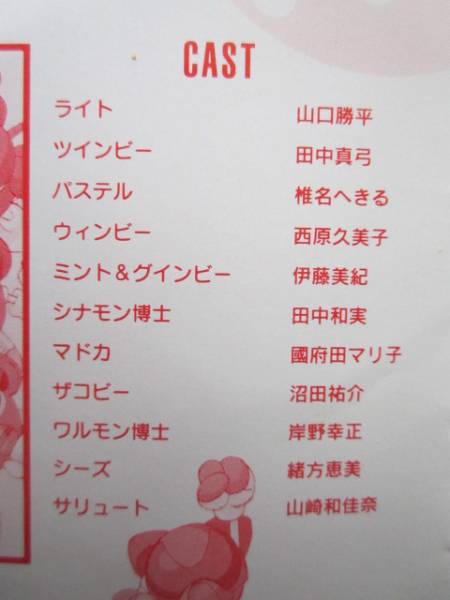 CAST
ライト 山口勝平
ツインビー 田中真弓
パステル 椎名へきる
ウィンビー 西原久美子
ミント＆グインビー 伊藤美紀
シナモン博士 田中和実
マドカ 國府田マリ子
ザコビー 沼田祐介
ワルモン博士 岸野幸正
シーズ 緒方恵美
サリュート 山崎和佳奈